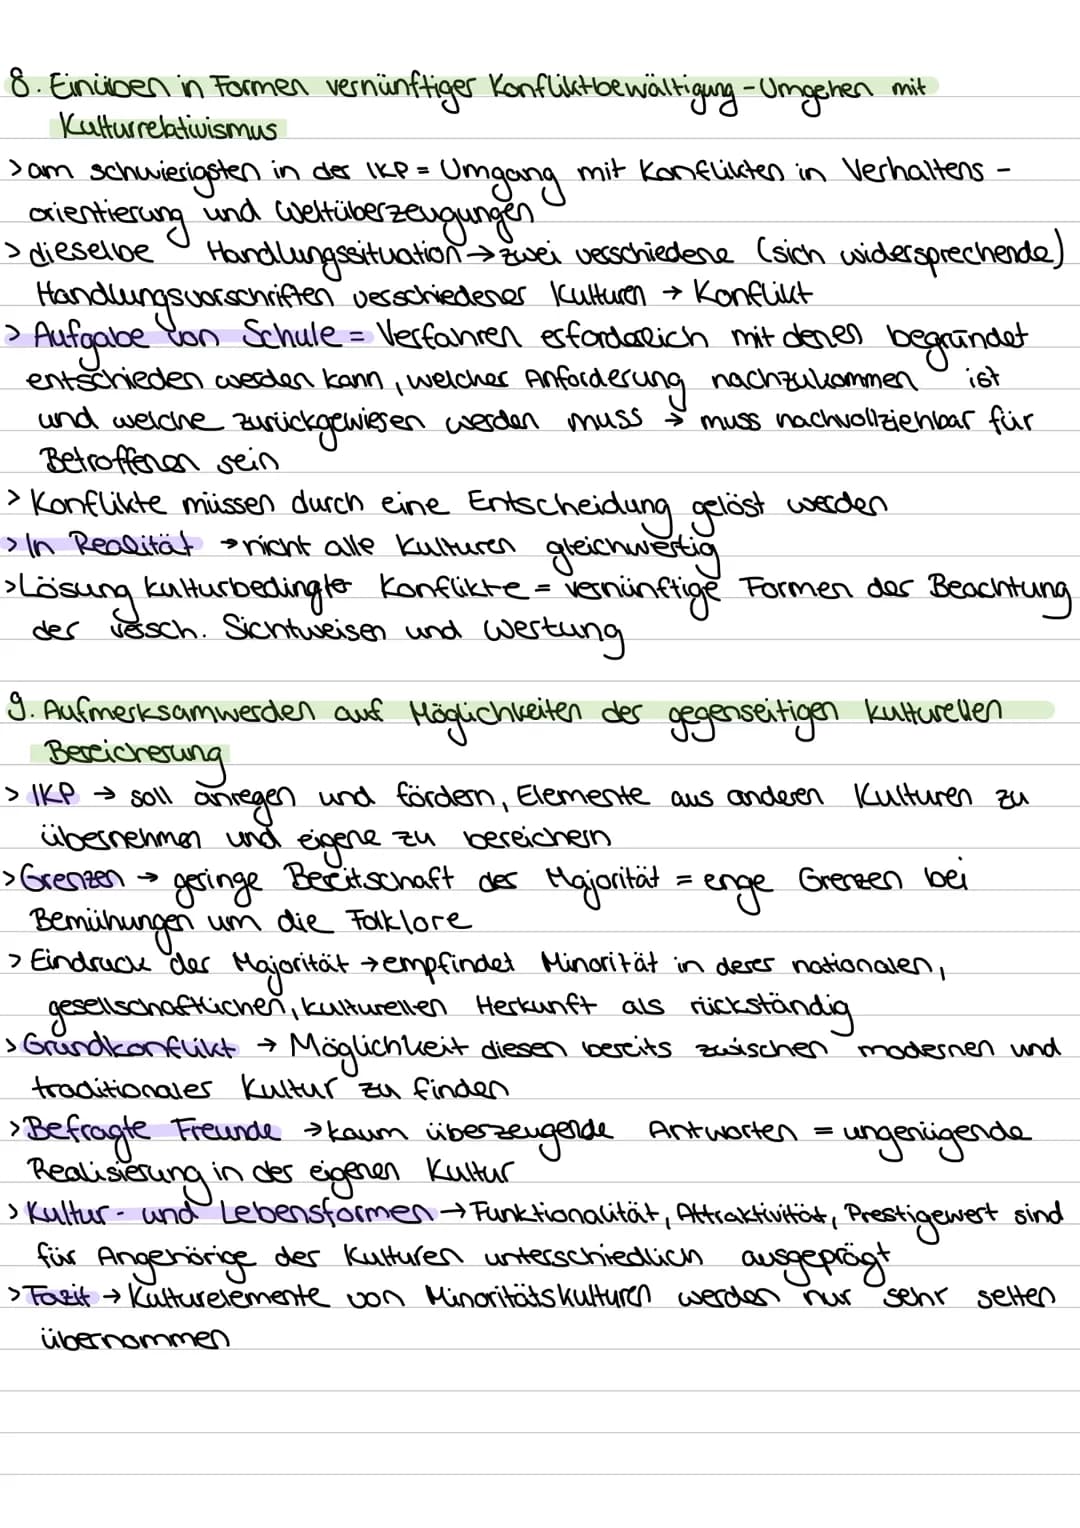 8. Einüben in Formen vernünftiger Konfliktbewältigung - Umgehen mit
Kulturrelativismus
> am schwierigsten in der IKP = Umgang mit Konflikten in Verhaltens-
orientierung und Weltüberzeugungen
> dieselbe Handlungssituation → zwei verschiedene (sich widersprechende)
Handlungsvorschriften verschiedener Kulturen → Konflikt
> Aufgabe von Schule = Verfahren erforderlich mit denen begründet
entschieden werden kann, welcher Anforderung nachzukommen ist
und welche zurückgewiesen werden muss → muss nachvollziehbar für
Betroffenen sein
> Konflikte müssen durch eine Entscheidung gelöst werden
> In Realität → nicht alle Kulturen gleichwertig
> Lösung kulturbedingter Konflikte = vernünftige Formen der Beachtung
der versch. Sichtweisen und Wertung
9. Aufmerksamwerden auf Möglichkeiten der gegenseitigen kulturellen
Bereicherung
> IKP → soll anregen und fördern, Elemente aus anderen Kulturen zu
übernehmen und eigene zu bereichern
> Grenzen → geringe Bereitschaft der Majorität = enge Grenzen bei
Bemühungen um die Folklore
> Eindruck der Majorität → empfindet Minorität in derer nationalen,
gesellschaftlichen, kulturellen Herkunft als rückständig
> Grundkonflikt → Möglichkeit diesen bereits zwischen modernen und
traditionaler Kultur zu finden
> Befragte Freunde → kaum überzeugende Antworten = ungenügende
Realisierung in der eigenen Kultur
> Kultur- und Lebensformen → Funktionalität, Attraktivität, Prestigewert sind
für Angehörige der Kulturen unterschiedlich ausgeprägt
> Fazit → Kulturelemente von Minoritätskulturen werden nur sehr selten
übernommen